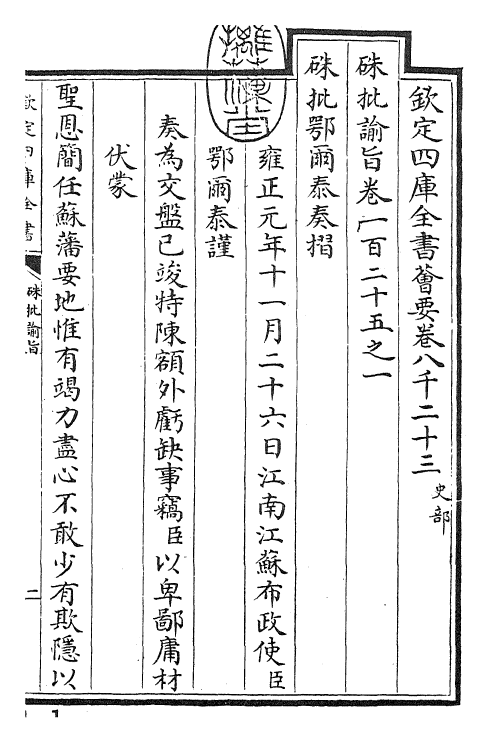 欽定四庫全書薈要卷八千二十三 史部
硃批諭旨卷一百二十五之一
硃批鄂爾泰奏摺
雍正元年十一月二十六日江南江蘇布政使臣
鄂爾泰謹
奏為交盤已竣特陳額外虧缺事竊臣以卑鄙庸材
伏蒙
聖恩簡任蘇藩要地惟有竭力盡心不敢少有欺隱以
欽定四庫全書
硃批諭旨
二
摛藻堂
1